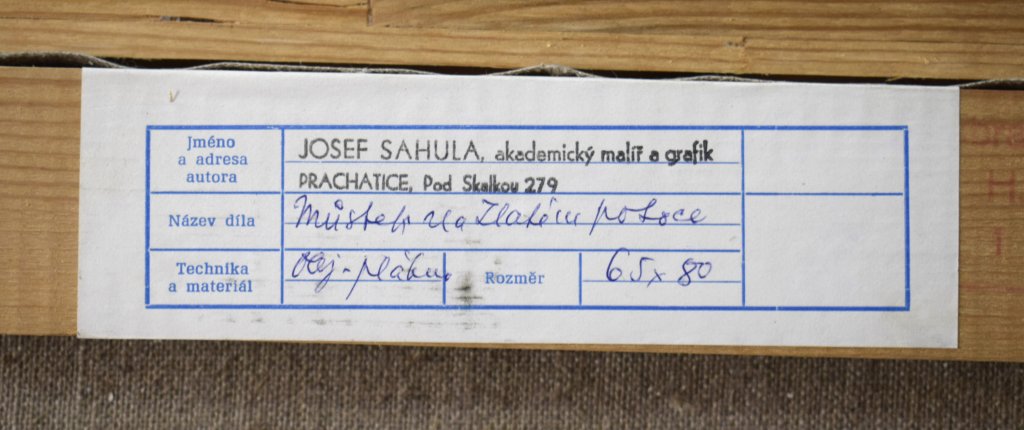 Jméno
a adresa
autora
JOSEF SAHULA, akademický malíř a grafik
PRACHATICE, Pod Skalkou 279
Název díla
Můstek na Zlatém potoce
Technika
a materiál
Olej - plátno
Rozměr
65 x 80